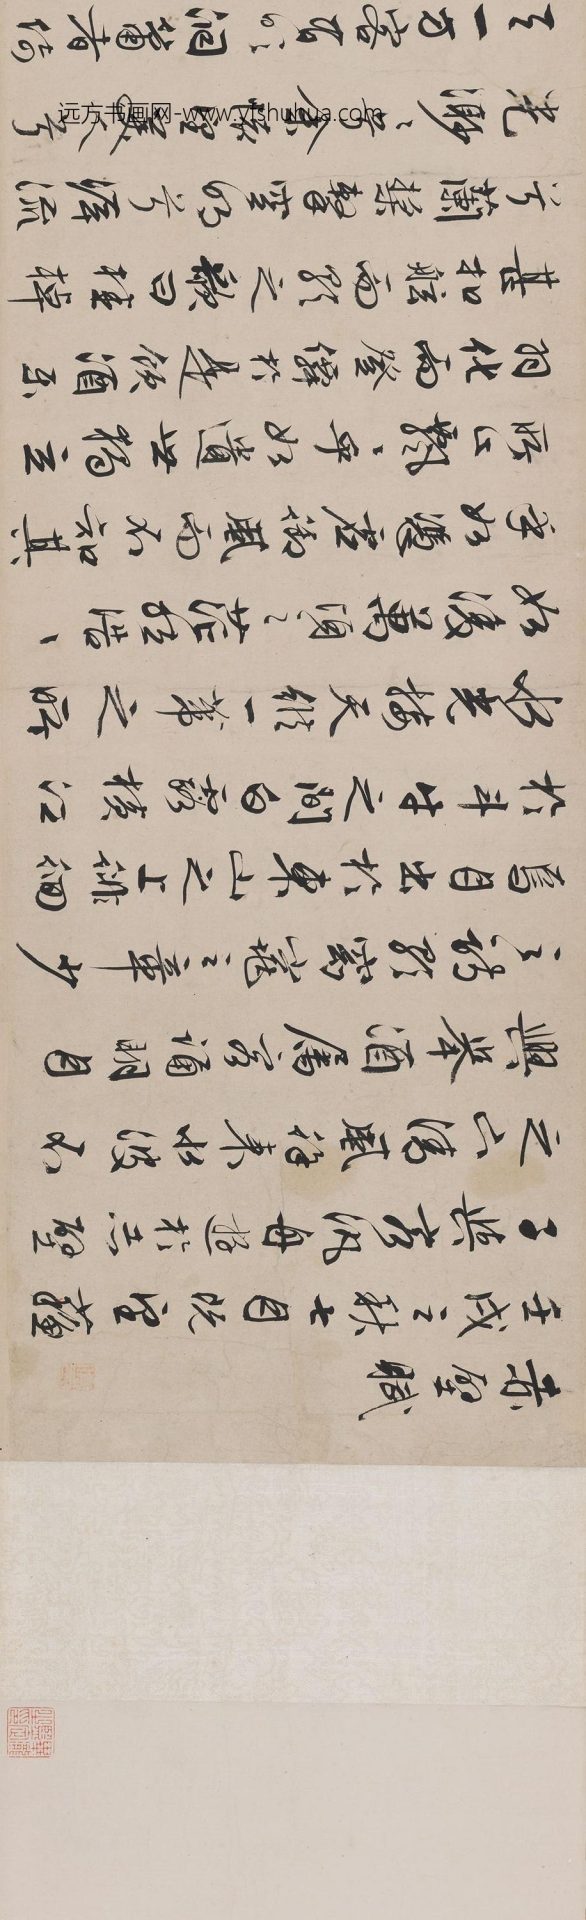 赤壁賦
壬戌之秋七月既望蘇
子與客汎舟遊於赤壁
之下清風徐來水波不
興舉酒屬客誦明月
之詩歌窈窕之章少
焉月出於東山之上徘徊
於斗牛之間白露橫江
水光接天縱一葦之所
如凌萬頃之茫然浩〻
乎如馮虛御風而不知其
所止飄〻乎如遺世獨立
羽化而登僊於是飲酒樂
甚扣舷而歌之歌曰桂棹
兮蘭槳擊空明兮泝流
光渺〻兮余懷望美人兮
天一方客有吹洞簫者倚
远方书画网-www.yfshuhua.com